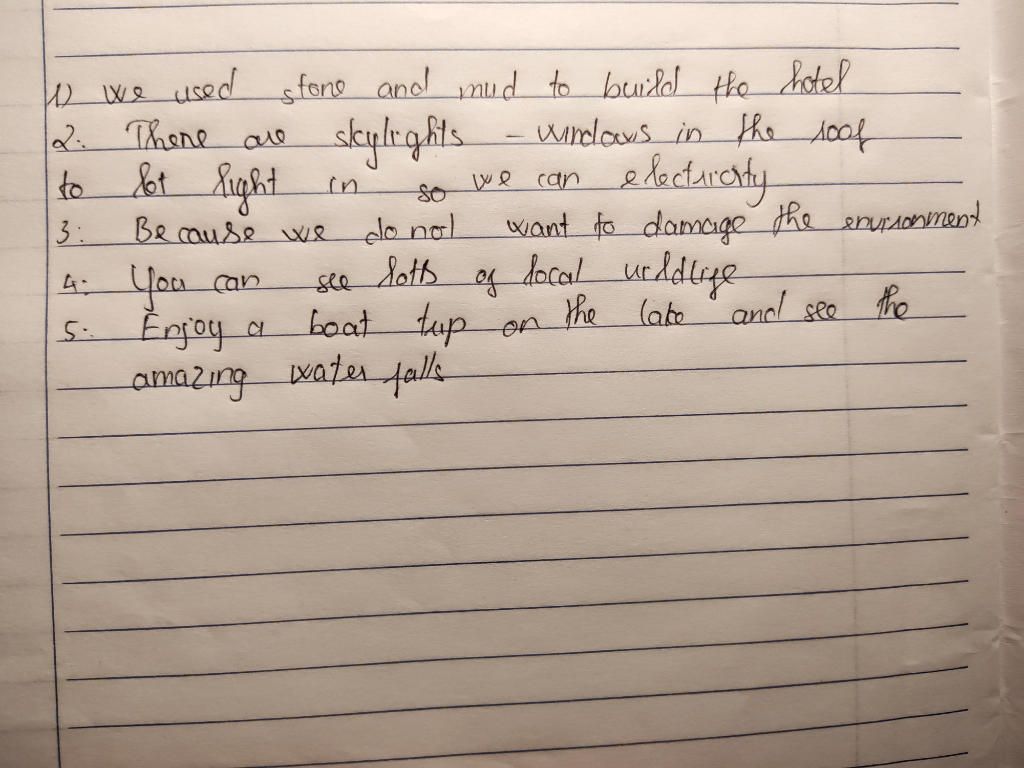 1) we used stone and mud to build the hotel
2. There are skylights - windows in the roof
to let light in so we can electricity
3: Because we do not want to damage the environment
4: You can see lots of local wildlife
5: Enjoy a boat trip on the lake and see the
amazing water falls